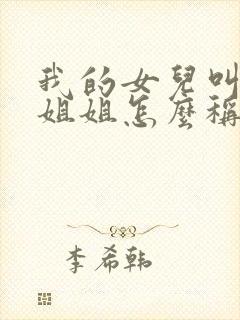 我的女兒叫
姐姐怎麼稱
李希韓